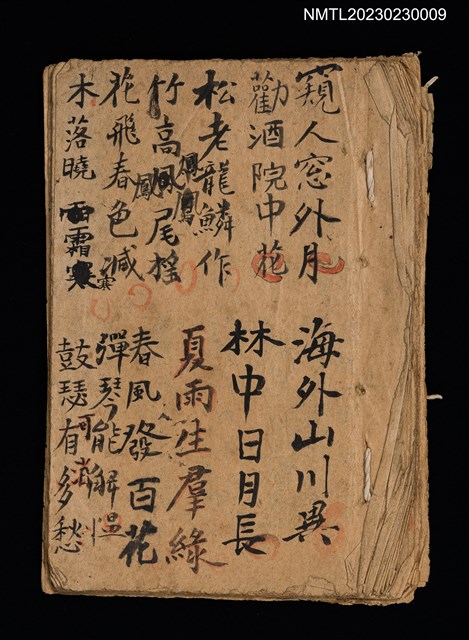 NMTL20230230009
窺人窓外月
勸酒院中花
松老龍鱗作
竹高鳳尾搖
花飛春色減
木落曉霜寒
海外山川異
林中日月長
夏雨生羣綠
春風發百花
彈琴能解愠
鼓瑟可有多愁